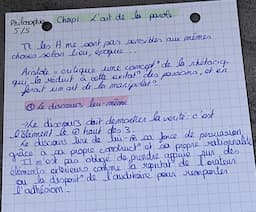 Philosophie Chap1 L'art de la parole
5/5
TT les H ne sont pas sensibles aux mêmes
choses selon lieu, époque...
Aristote → critique une concept° de la rhétorique
qui la réduit à cette des passions, et en
ferait un art de la manipulat°
① Le discours lui-même
→ Le discours doit démontrer la vérité : c'est
l'élément le ⊕ haut des 3.
Le discours tire de lui-m sa force de persuasion
grâce à sa propre construct° et sa propre rationalité
Il n'est pas obligé de prendre appui sur des
éléments extérieurs comme la réputat° de l'orateur
ou la disposit° de l'auditoire pour remporter
l'adhésion.